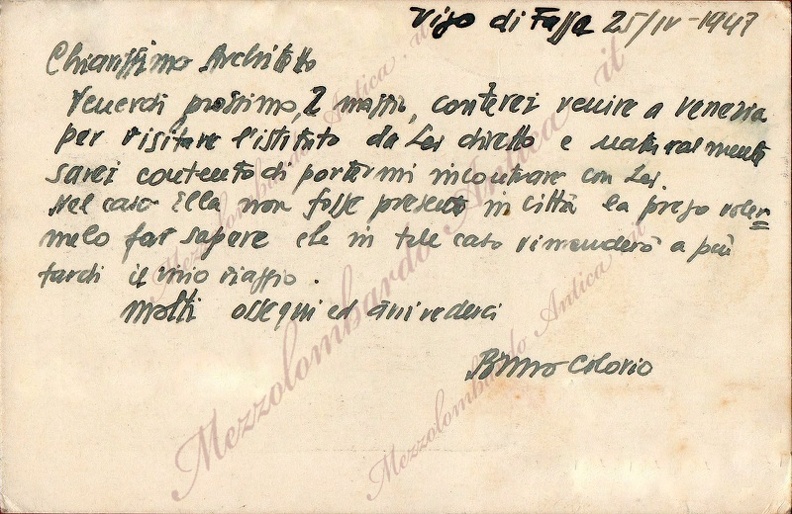 Vigo di Fassa 25/IV-1947
Chiarissimo Architetto
Venerdì prossimo, 2 maggio, conterei venire a Venezia
per visitare l'istituto da Lei diretto e naturalmente
sarei contento di potermi incontrare con Lei.
Nel caso Ella non fosse presente in città la prego voler=
melo far sapere che in tale caso rimanderò a più
tardi il mio viaggio.
Molti ossequi ed arrivederci
Bruno Colorio
Mezzolombardo Antica.it
Mezzolombardo Antica.it
Mezzolombardo Antica.it